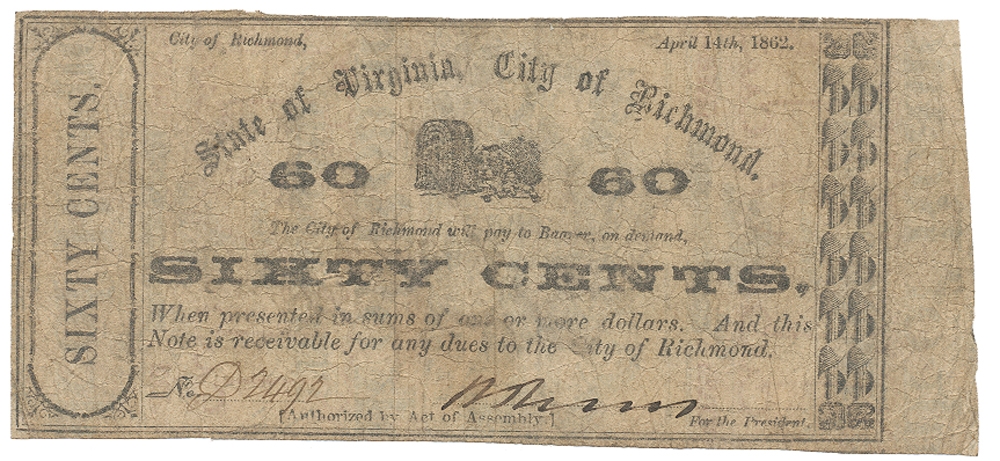 SIXTY CENTS.
City of Richmond, April 14th, 1862.
State of Virginia, City of Richmond,
60 60
The City of Richmond will pay to Bearer, on demand,
SIXTY CENTS,
When presented in sums of one or more dollars. And this
Note is receivable for any dues to the City of Richmond.
No. D 2492
[Authorized by Act of Assembly.] For the President.